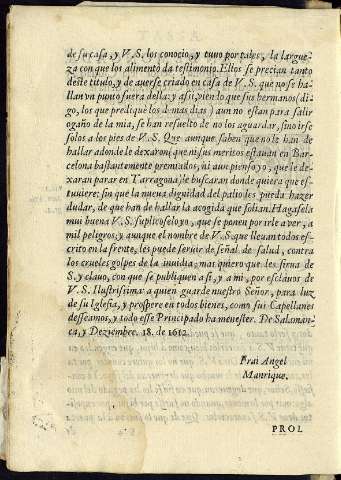 de su casa, y V.S. los conocio, y tuvo por tales, la largue-
za con que los alimentò da testimonio. Ellos se precian tanto
deste titulo, y de auerse criado en casa de V.S. que no se ha-
llan vn punto fuera della: y assi, viendo que sus hermanos (di-
go, los que prediquè los demas dias) aun no estan para salir
ogaño de la mia, se han resuelto de no los aguardar, sino irse
solos a los pies de V.S. Que aunque saben que no le han de
hallar adonde le dexaron (que ni sus meritos estauan en Bar-
celona bastantemente premiados, ni aun pienso yo, que le de-
xaran parar en Tarragona) le buscaran donde quiera que es-
tuuiere: sin que la nueua dignidad del palio les pueda hazer
dudar, de que han de hallar la acogida que solian. Hagasela
mui buena V.S. suplicoselo yo, que se ponen por irle a ver, a
mil peligros, y aunque el nombre de V.S. que lleuan todos es-
crito en la frente, les puede seruir de señal de salud, contra
los crueles golpes de la inuidia; mas quiero que les sirua de
S. y clauo, con que se publiquen a si, y a mi, por esclauos de
V.S. Ilustrissima a quien guarde nuestro Señor, para luz
de su Iglesia, y prospere en todos bienes, como sus Capellanes
desseamos, y todo esse Principado ha menester. De Salaman-
ca, y Deziembre. 18. de 1612.
Frai Angel
Manrique.
PROL